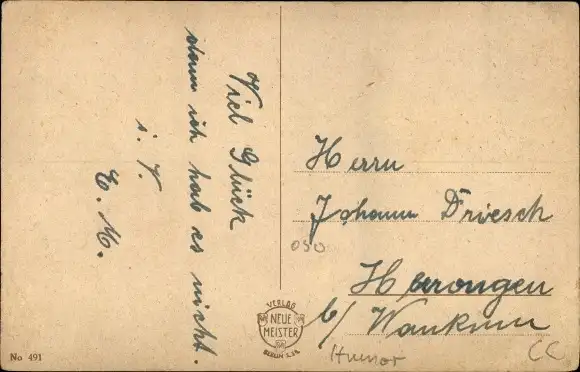 Viel Glück
dann ich hab es nicht.
i. V.
E. M.
Herrn
Johann Driesch
Herongen
b/ Wankum
050
Humor
CC
VERLAG
NEUE
MEISTER
BERLIN S.14.
No 491